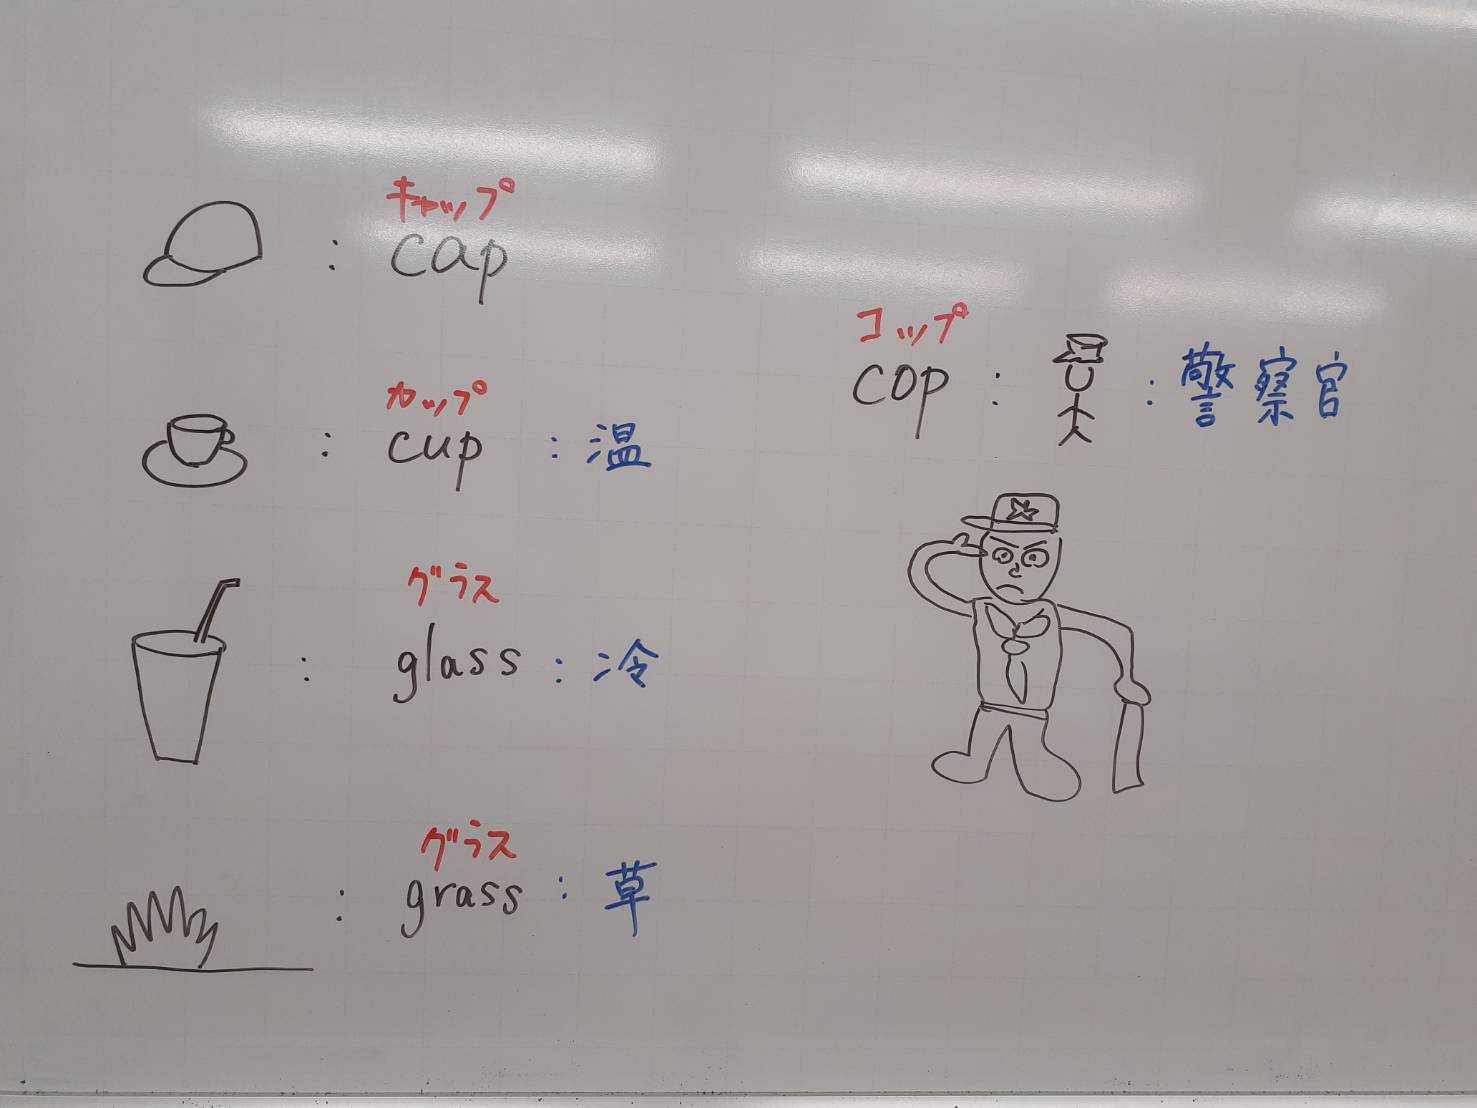 キャップ
: cap
カップ
: cup : 温
グラス
: glass : 冷
グラス
: grass : 草
コップ
cop : : 警察官